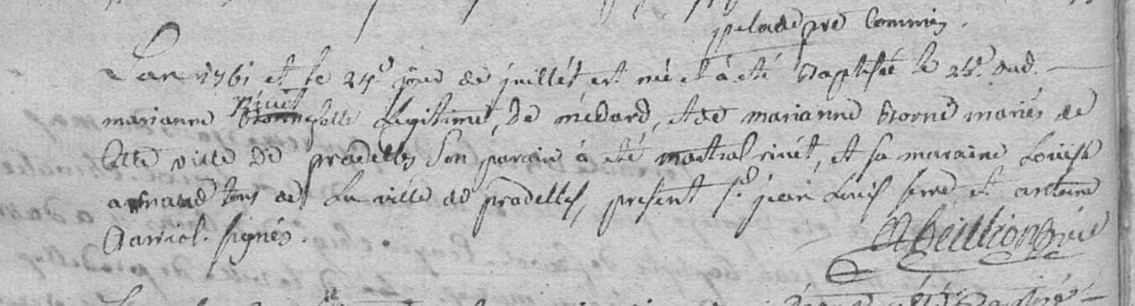 pelade pre commis.
L'an 1761 et le 24e jour de juillet, est né et a été baptisé le 25e dud.
marianne Rivet fille légitime, de médard, et de marianne Borne mariés de
cette ville de pradelles son parain à été martial rivet, et sa maraine Louise
arnaud tous de La ville de pradelles, présent sr jean Louis serre et antoine
signés.